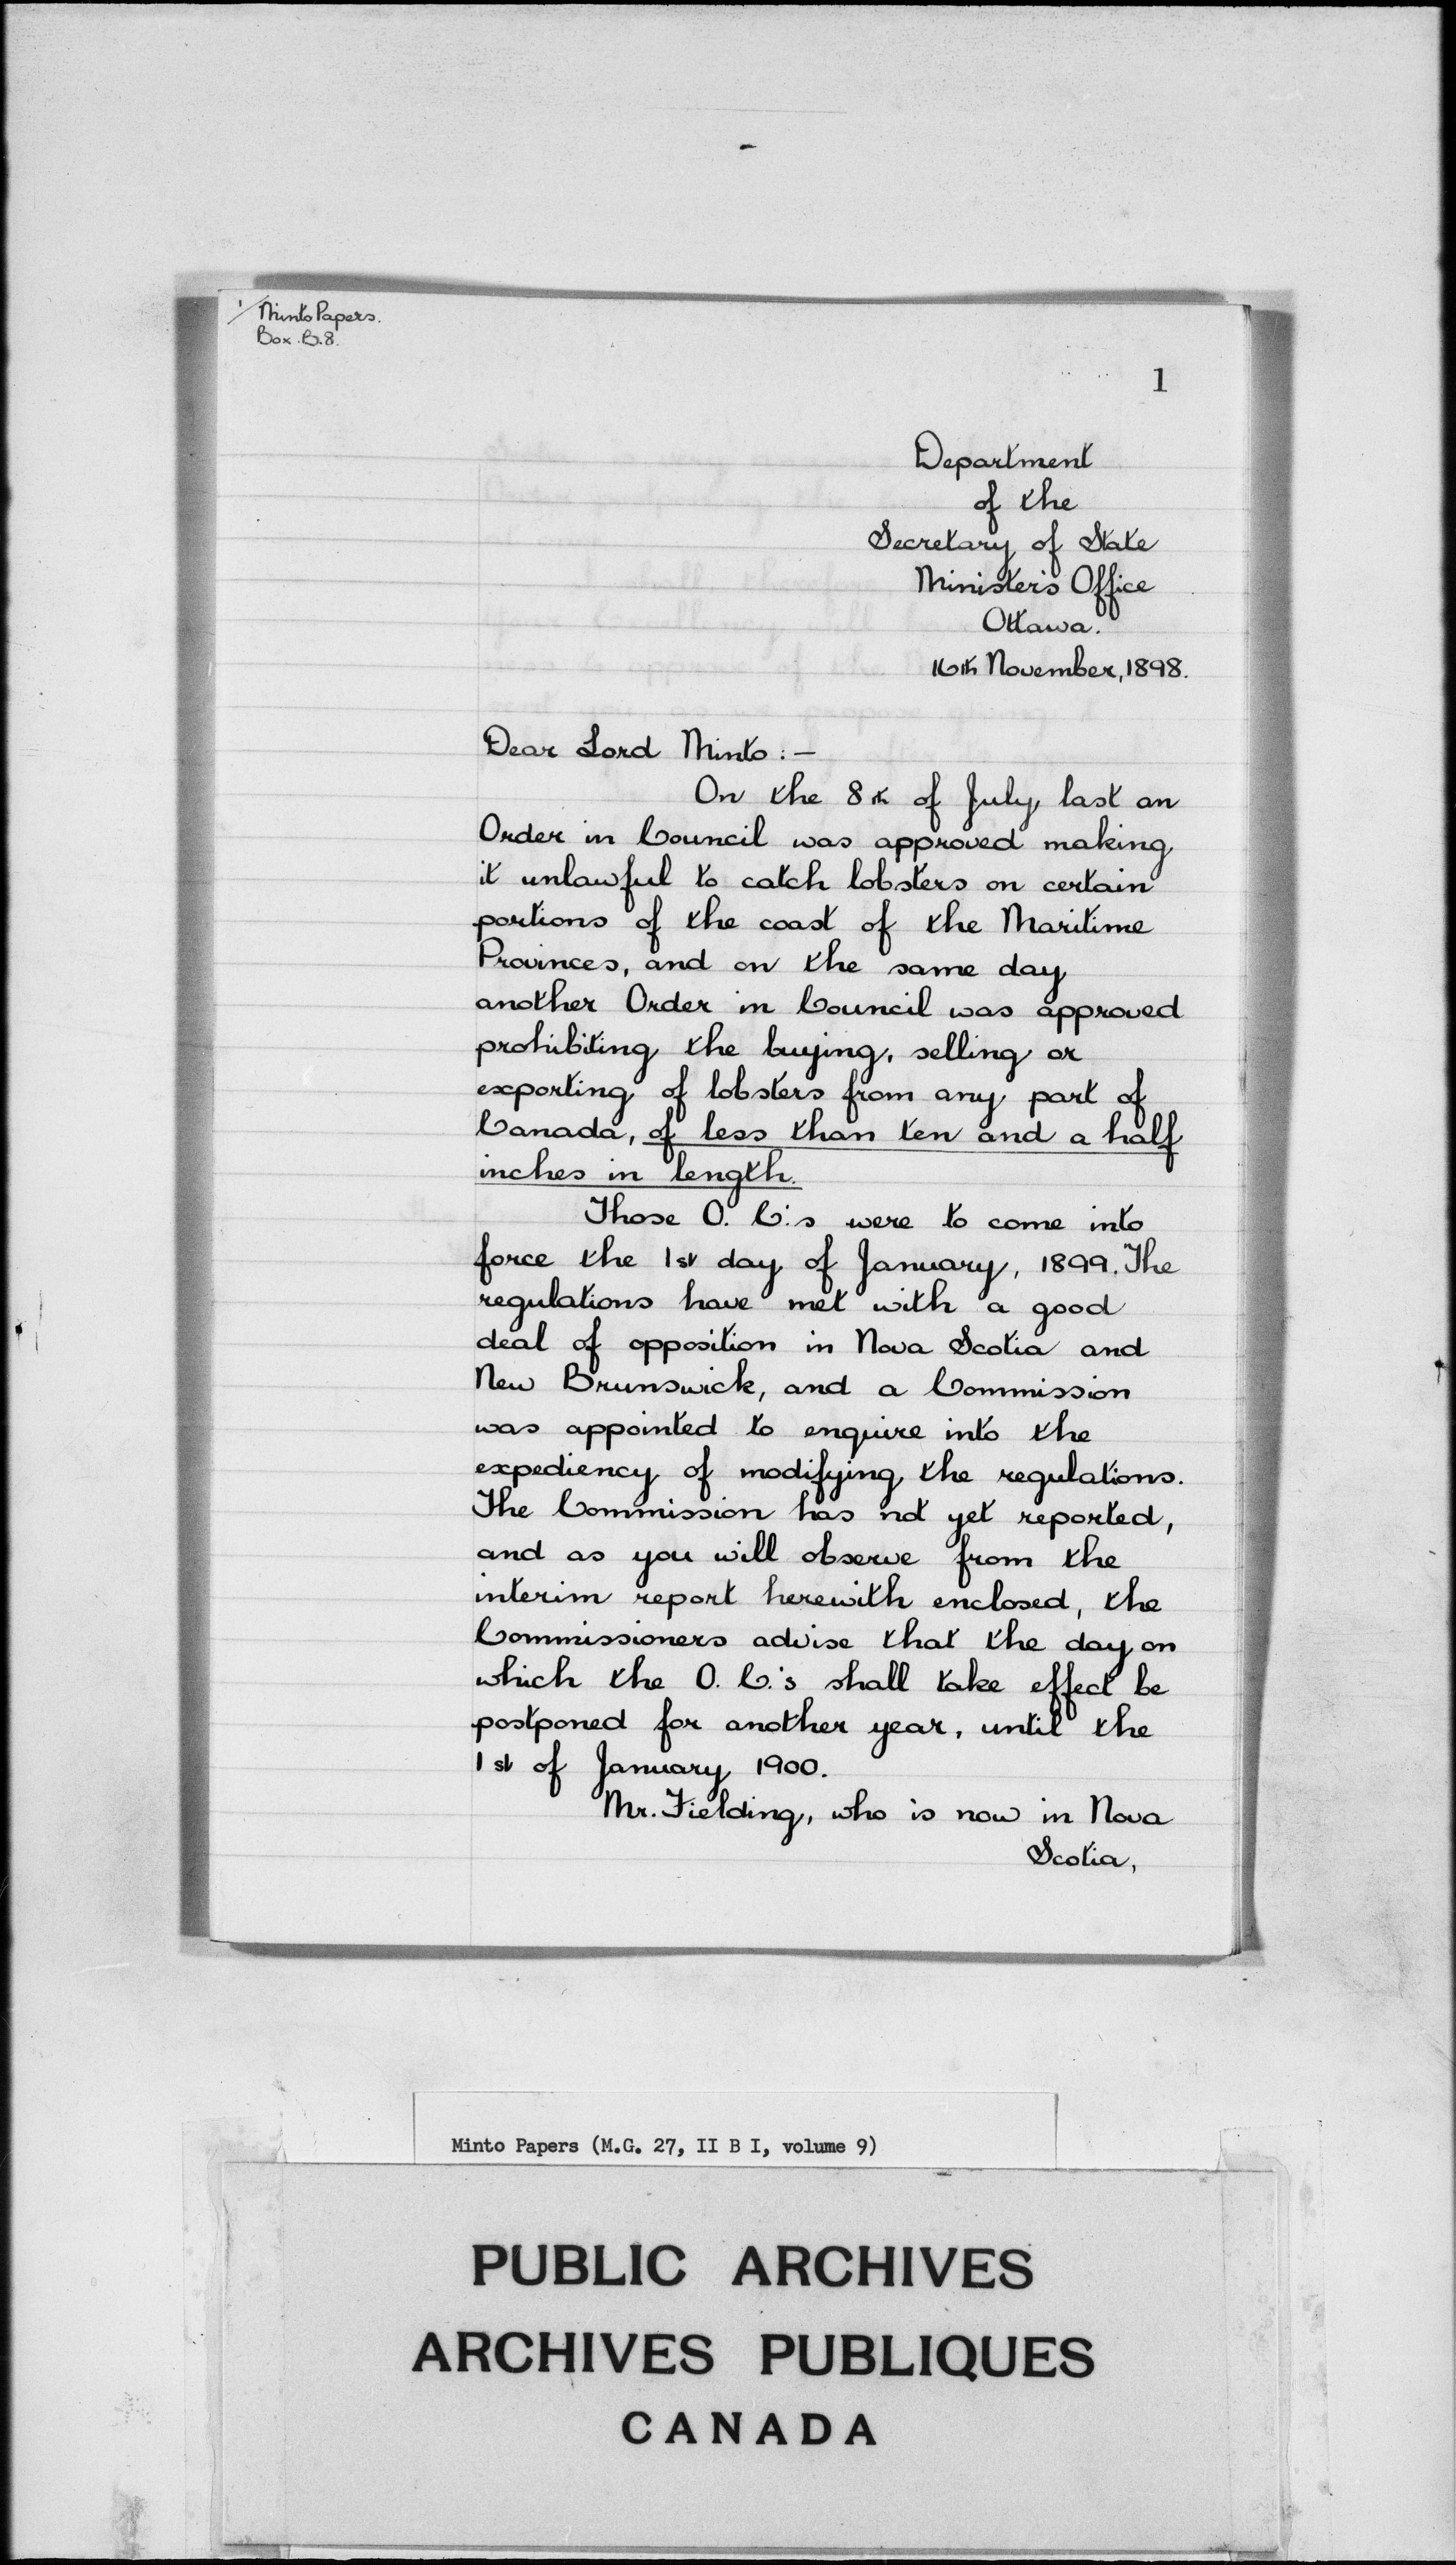 1/ Minto Papers.
Box. B.8.
1
Department
of the
Secretary of State
Minister's Office
Ottawa.
16th November, 1898.
Dear Lord Minto : —
On the 8th of July last an
Order in Council was approved making
it unlawful to catch lobsters on certain
portions of the coast of the Maritime
Provinces, and on the same day
another Order in Council was approved
prohibiting the buying, selling or
exporting of lobsters from any part of
Canada, of less than ten and a half
inches in length.
Those O. C.'s were to come into
force the 1st day of January, 1899. The
regulations have met with a good
deal of opposition in Nova Scotia and
New Brunswick, and a Commission
was appointed to enquire into the
expediency of modifying the regulations.
The Commission has not yet reported,
and as you will observe from the
interim report herewith enclosed, the
Commissioners advise that the day on
which the O. C.'s shall take effect be
postponed for another year, until the
1st of January 1900.
Mr. Fielding, who is now in Nova
Scotia,
Minto Papers (M.G. 27, II B I, volume 9)
PUBLIC ARCHIVES
ARCHIVES PUBLIQUES
CANADA